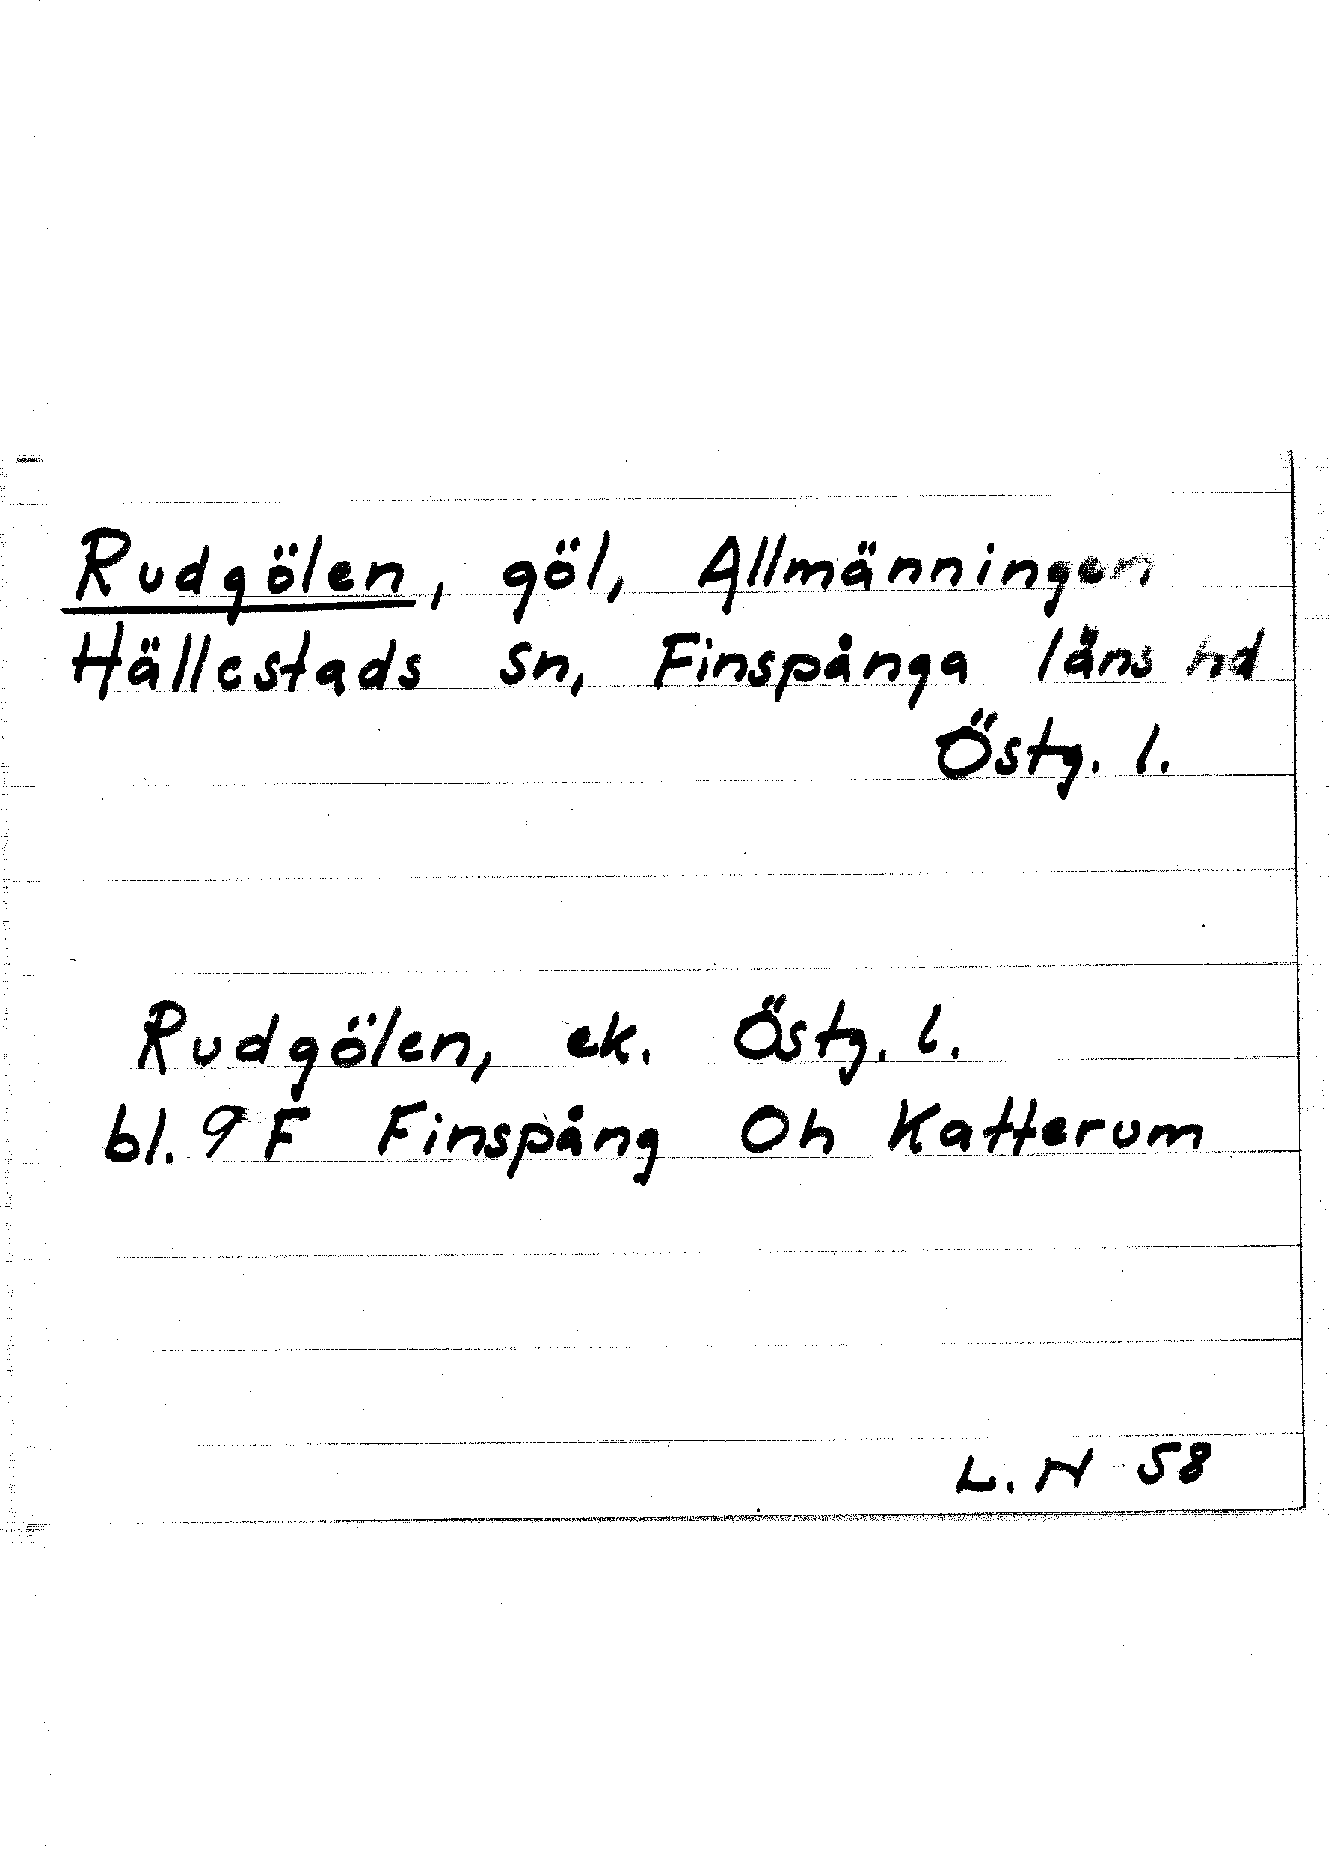 Rudgölen, göl, Allmänningen
Hällestads sn, Finspånga läns hd
Östg. l.
Rudgölen, ek. Östg. l.
bl. 9 F Finspång Oh Katterum
L. N 58